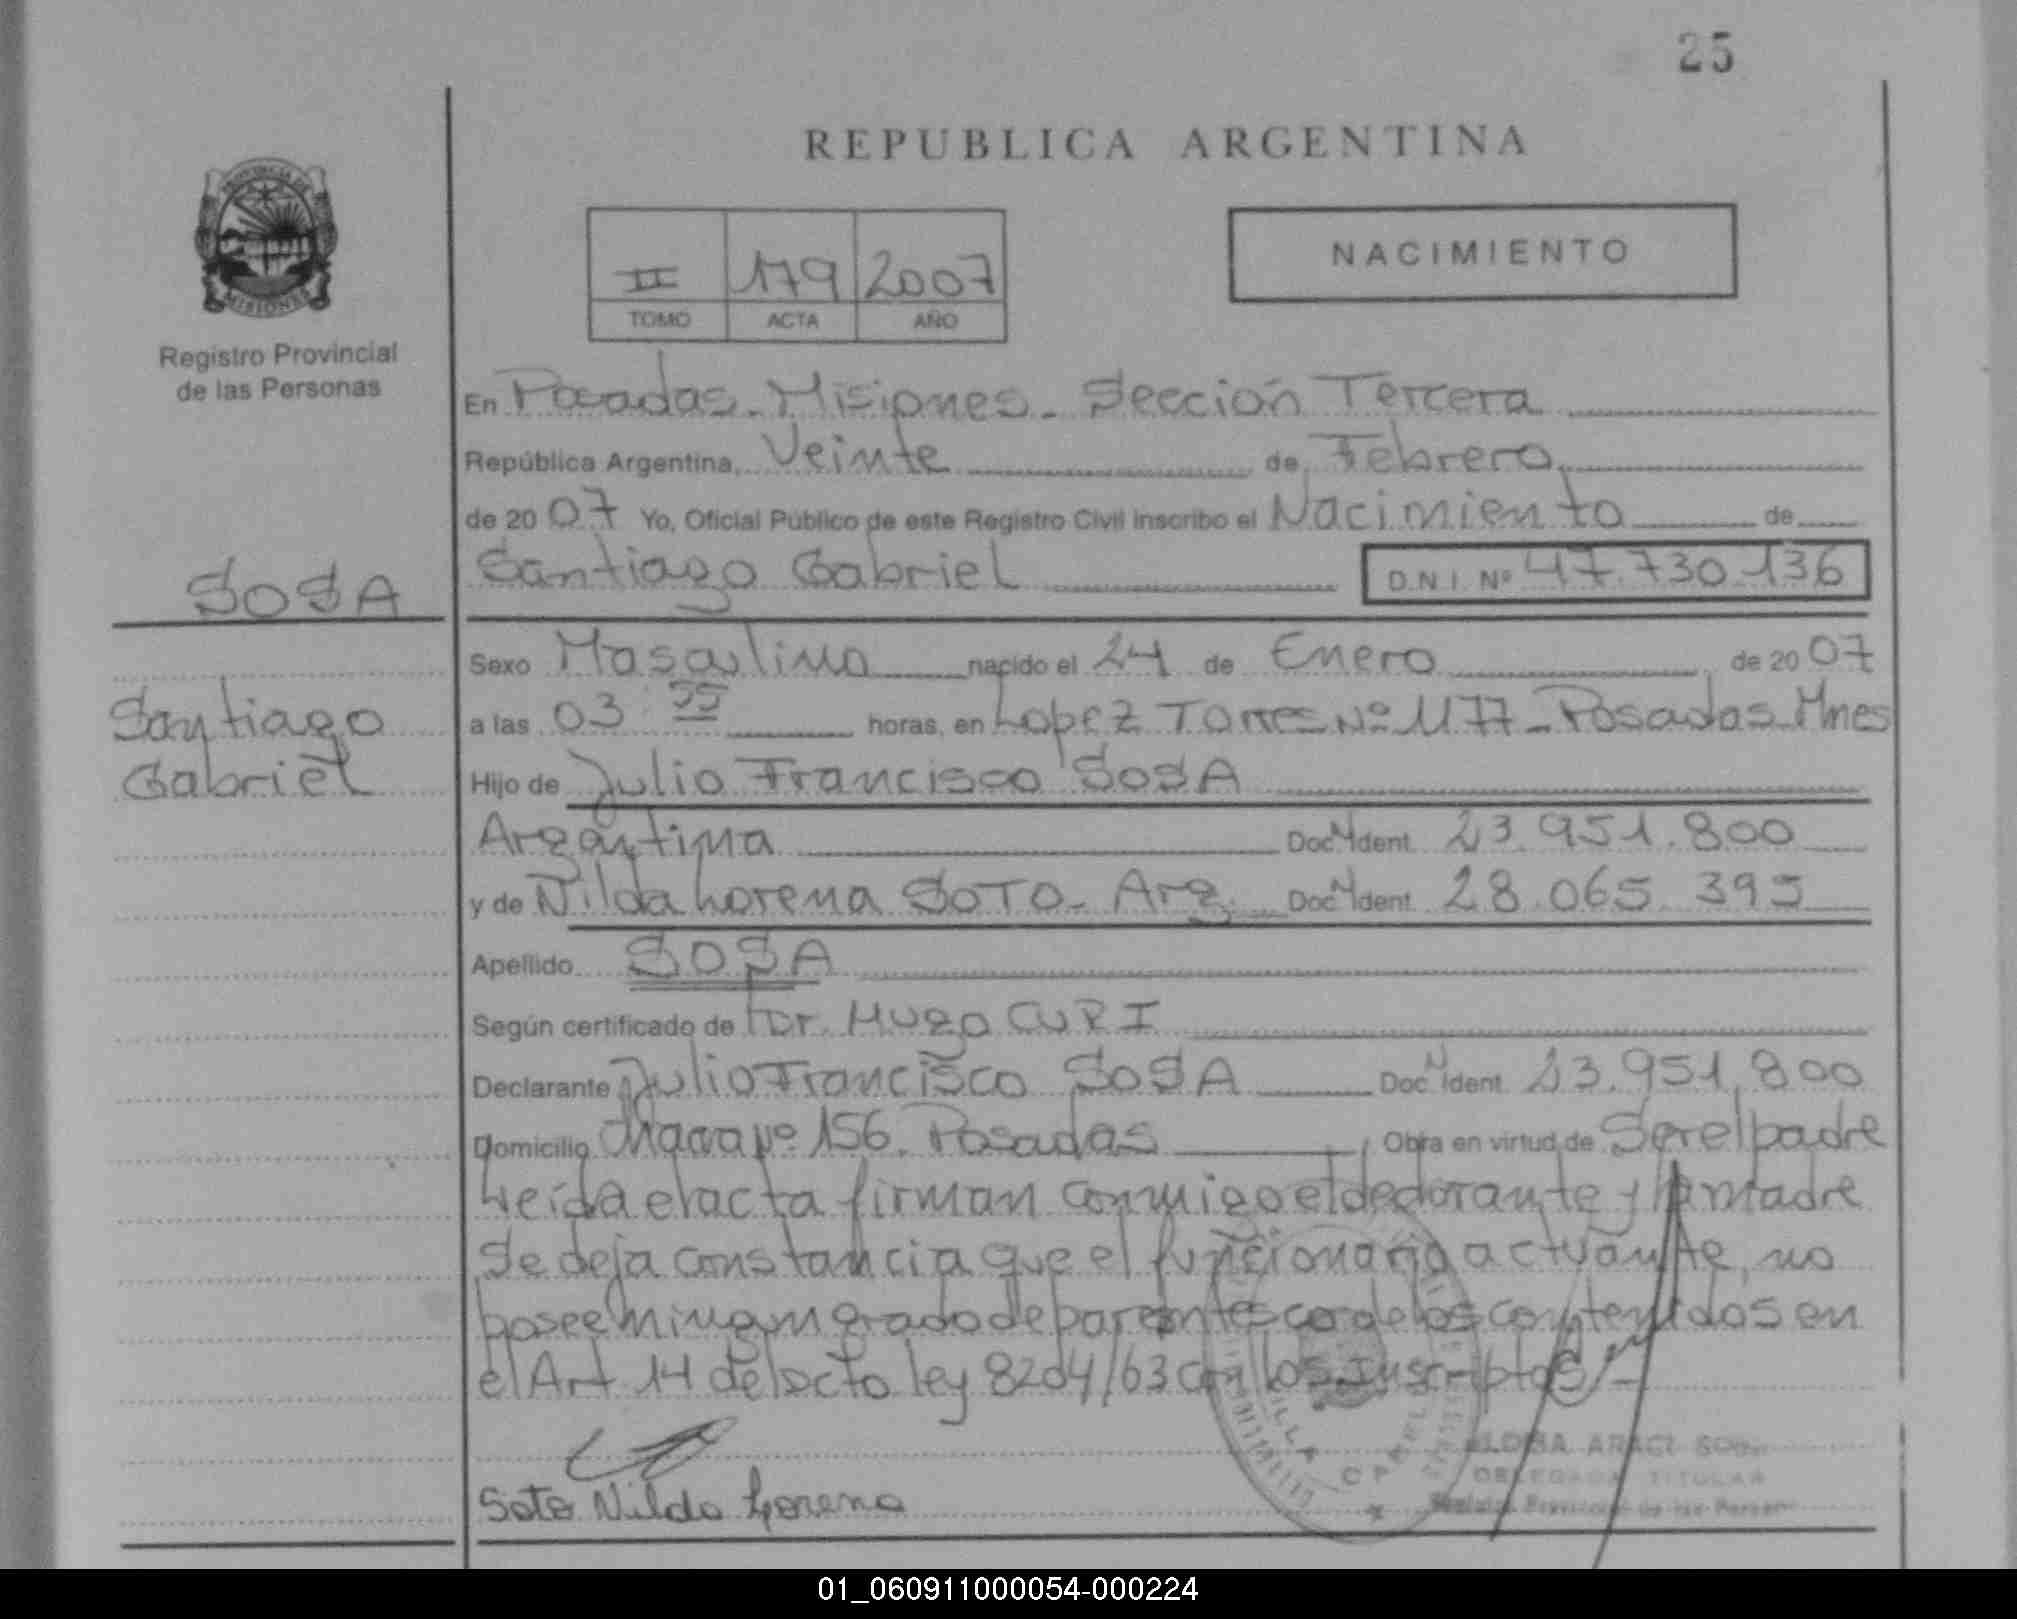 25
REPUBLICA ARGENTINA
PROVINCIA DE
MISIONES
Registro Provincial
de las Personas
II 179 2007
TOMO ACTA AÑO
NACIMIENTO
En Posadas - Misiones - Sección Tercera
República Argentina, Veinte de Febrero
de 2007 Yo, Oficial Público de este Registro Civil inscribo el Nacimiento de
SOSA
Santiago Gabriel D.N.I. Nº 47.730.136
Sexo Masculino nacido el 24 de Enero de 2007
Santiago
Gabriel
a las 03:55 horas, en Lopez Torres Nº 1177 - Posadas - Mnes
Hijo de Julio Francisco SOSA
Argentina Doc. N Ident. 23.951.800
y de Nilda Lorena SOTO - Arg. Doc. N Ident. 28.065.395
Apellido SOSA
Según certificado de Dr. Hugo CURI
Declarante Julio Francisco SOSA Doc. N Ident. 23.951.800
Domicilio Nº 156. Posadas Obra en virtud de Ser el padre
Leída el acta firman conmigo el declarante y la madre
Se deja constancia que el funcionario actuante, no
posee ningun grado de parentesco de los contenidos en
el Art 14 del Dcto ley 8204/63 con los Inscriptos
Soto Nilda Lorena
ARACI
DELEGADA TITULAR
01_060911000054-000224